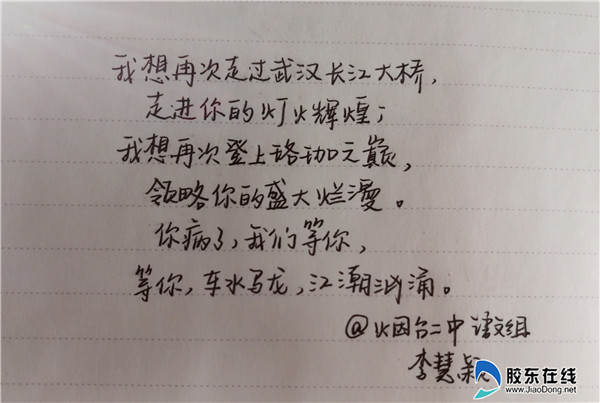 我想再次走过武汉长江大桥,
走进你的灯火辉煌;
我想再次登上珞珈之巅,
领略你的盛大烂漫。
你病了,我们等你,
等你,车水马龙,江潮汹涌。
@烟台二中语文组
李慧颖
胶东在线
www.JiaoDong.net